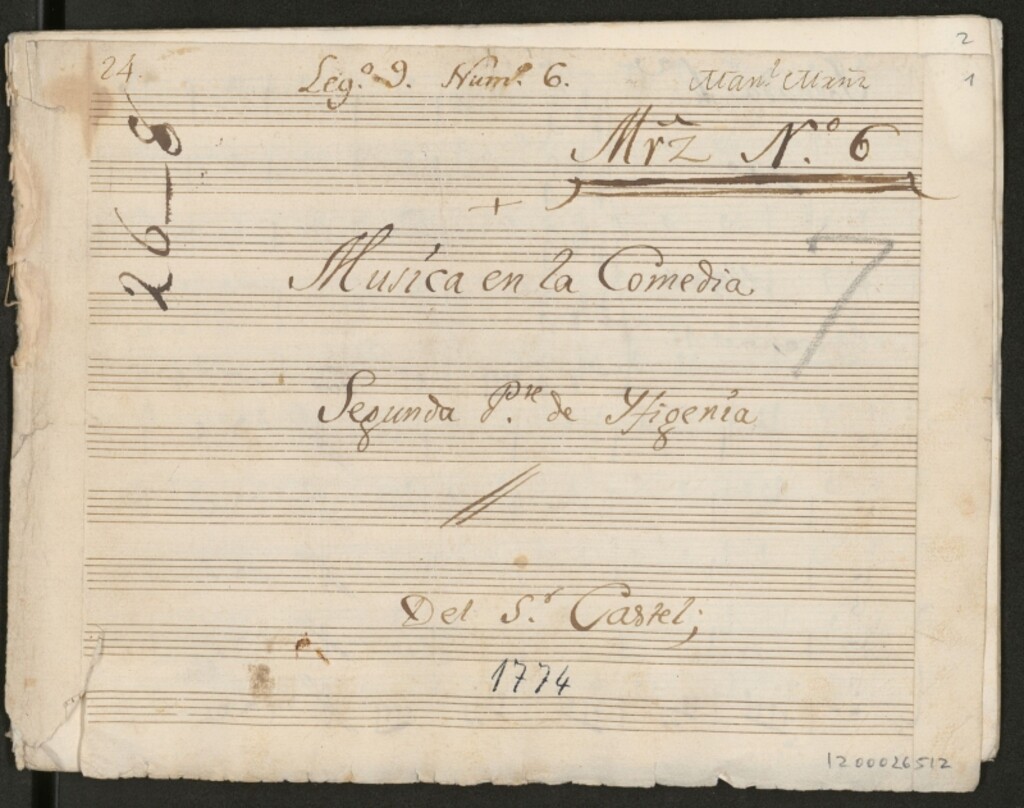 2
24. Leg.º 9. Num.º 6. Man.l
1
26_8
N.º 6
+
Musica en la Comedia
7
Segunda P.te de Yfigenia
Del S.r Castel;
1774
1200026512